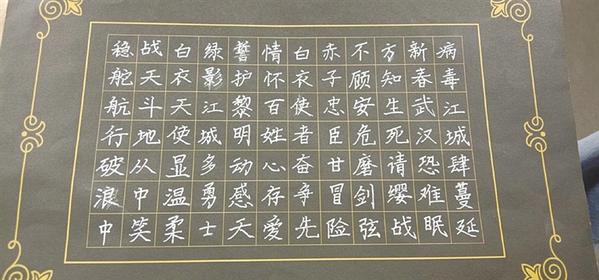 病毒江城肆蔓延
新春武汉恐难眠
方知生死请缨战
不顾安危磨剑弦
赤子忠臣甘冒险
白衣使者奋争先
情怀百姓心存爱
誓护黎明动感天
绿影江城多勇士
白衣天使显温柔
战天斗地从中笑
稳舵航行破浪中